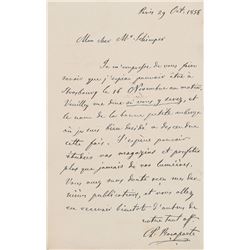 Paris 29 Oct. 1858
Mon cher Mr Schimper
Je m'empresse de vous prévenir
que j'espère pouvoir être à
Strasbourg le 16 Novembre au matin
Veuillez me dire si vous y serez, et
le nom de la bonne petite auberge
où je suis bien décidé à descendre
cette fois. J'espère pouvoir
étudier vos magasins et profiter
plus que jamais de vos lumières.
Vous avez sans doute reçu mes dernières
publications, et vous allez
en recevoir bientôt d'autres de
votre tout aff
Bonaparte